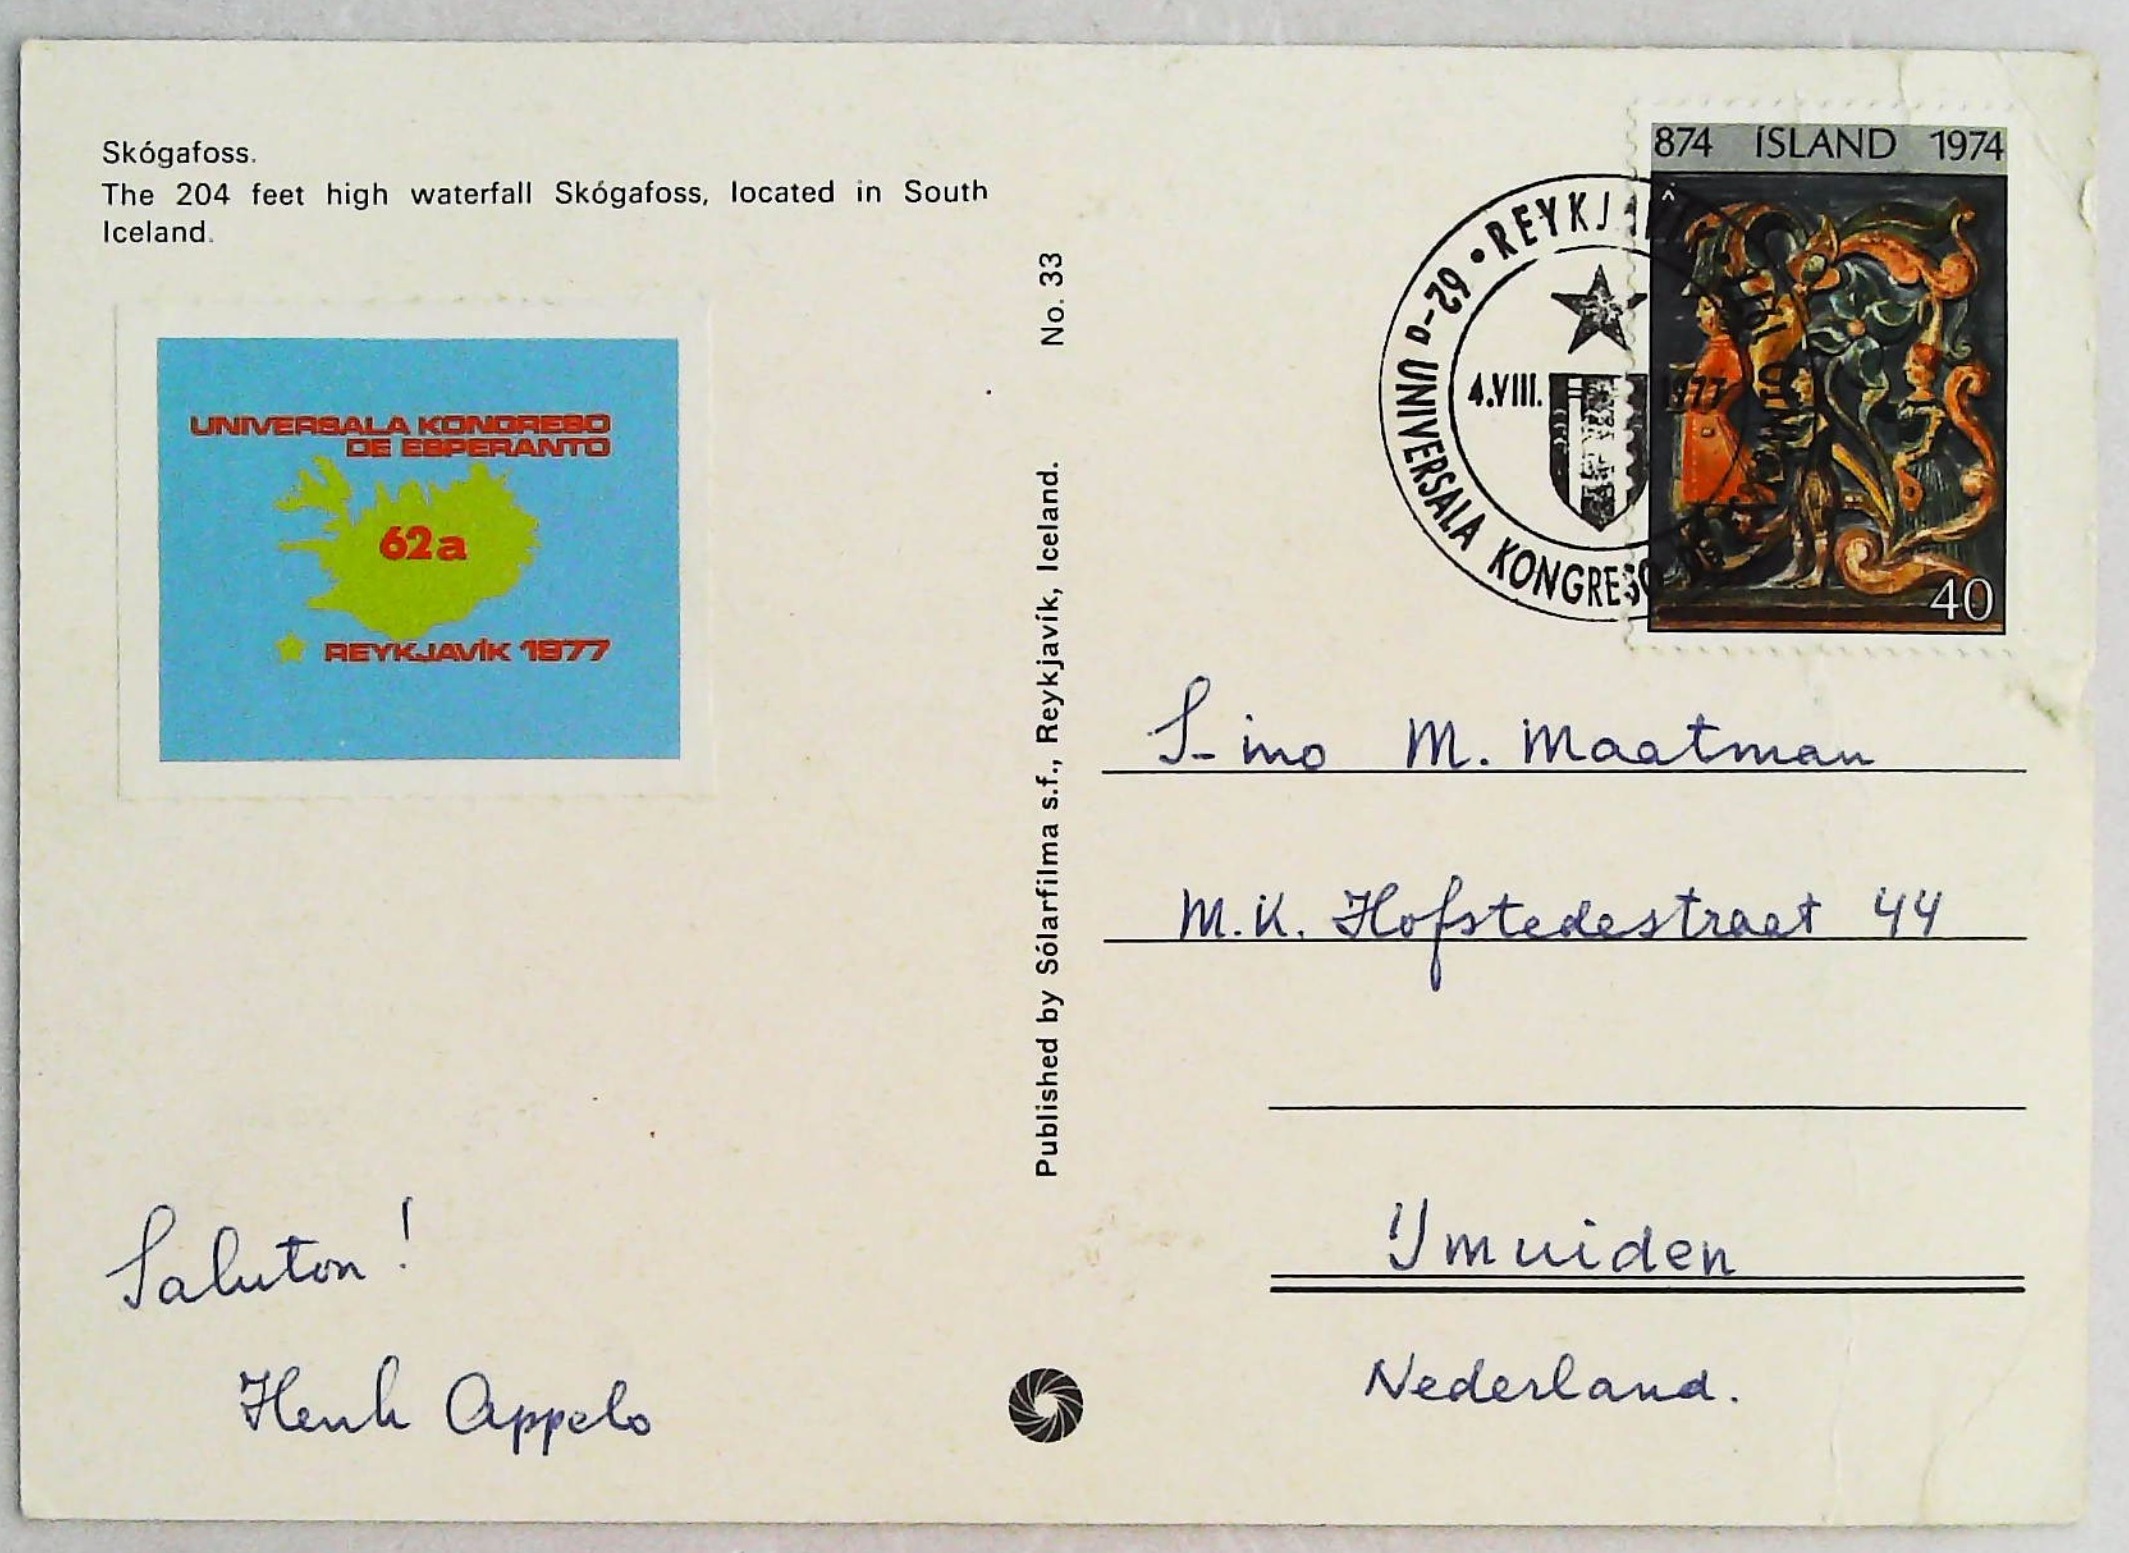 Skógafoss.
The 204 feet high waterfall Skógafoss, located in South
Iceland.
UNIVERSALA KONGRESO
DE ESPERANTO
62a
REYKJAVÍK 1977
Saluton!
Henk Appelo
Published by Sólarfilma s.f., Reykjavík, Iceland. No. 33
62-a UNIVERSALA KONGRESO
REYKJAVÍK
4.VIII. 1977
874 ÍSLAND 1974
40
S-ino M. Maatman
M.K. Hofstedestraat 44
IJmuiden
Nederland.